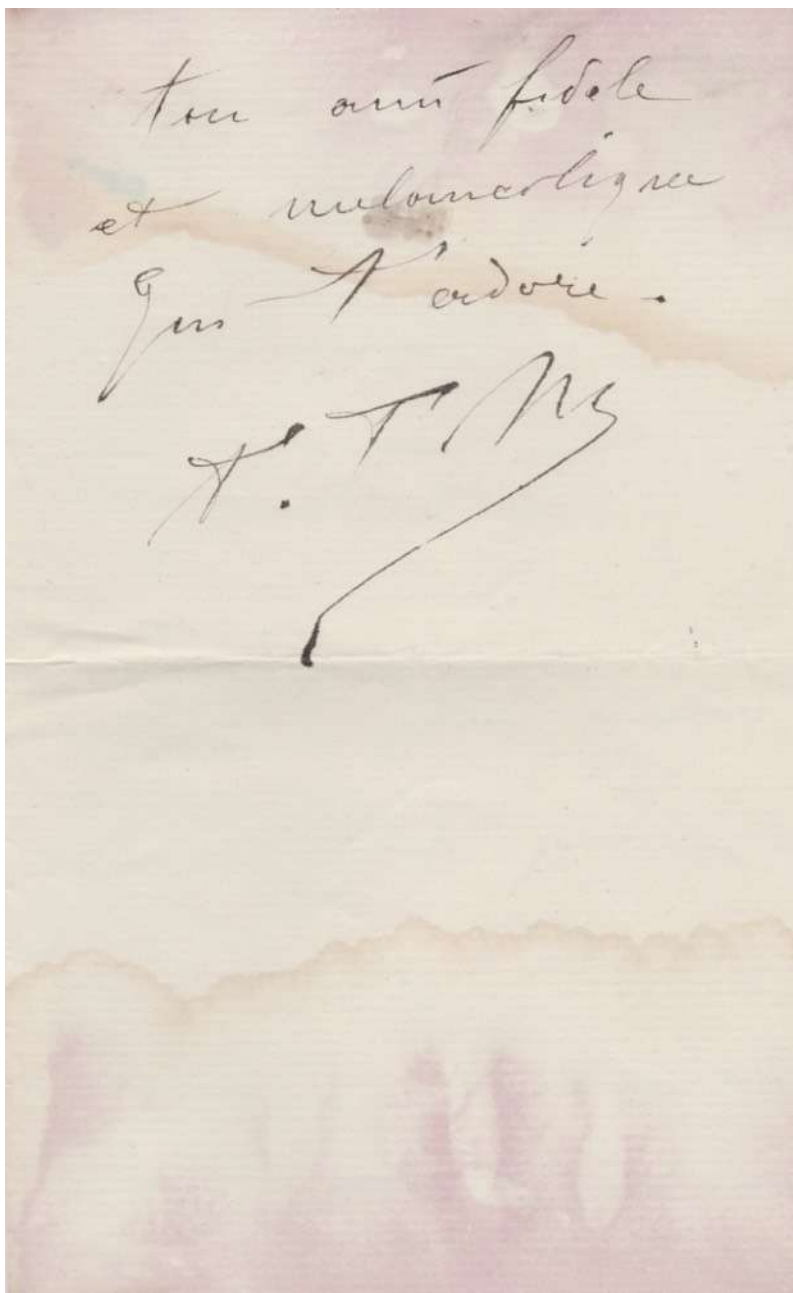 ton ami fidele
et melancolique
qui t'adore.